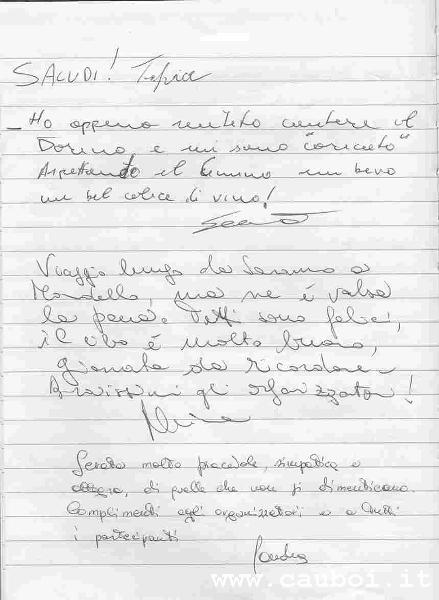 SALUDI!
- Ho appena sentito cantare il
Dorino e mi sono "caricato"
Aspettando il
un bel calice di vino!
Viaggio lungo da Saranno a
Mandello, ma ne é valsa
la pena. Tutti sono felici,
il cibo é molto buono,
giornata da ricordare
Bravissimi gli organizzatori!
Serata molto piacevole, simpatica e
allegra, di quelle che non si dimenticano.
Complimenti agli organizzatori e a tutti
i partecipanti
Sandra
www.cauboi.it